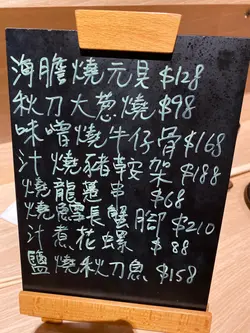 海膽燒元貝 $128
秋刀大葱燒 $98
味噌燒牛仔骨 $168
汁燒豬鞍架 $188
燒龍蓮串 $68
燒鱈長蟹腳 $210
汁煮花螺 $88
鹽燒秋刀魚 $158